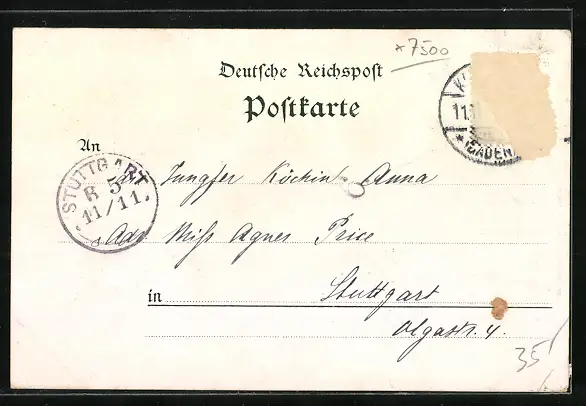 *7500
Deutsche Reichspost
Postkarte
11.11
*(BADEN
An
STUTTGART
B 5
11/11.
Jungfer Köchin Anna
Adr. Miss Agnes Price
in Stuttgart
Olgastr. 4.
35